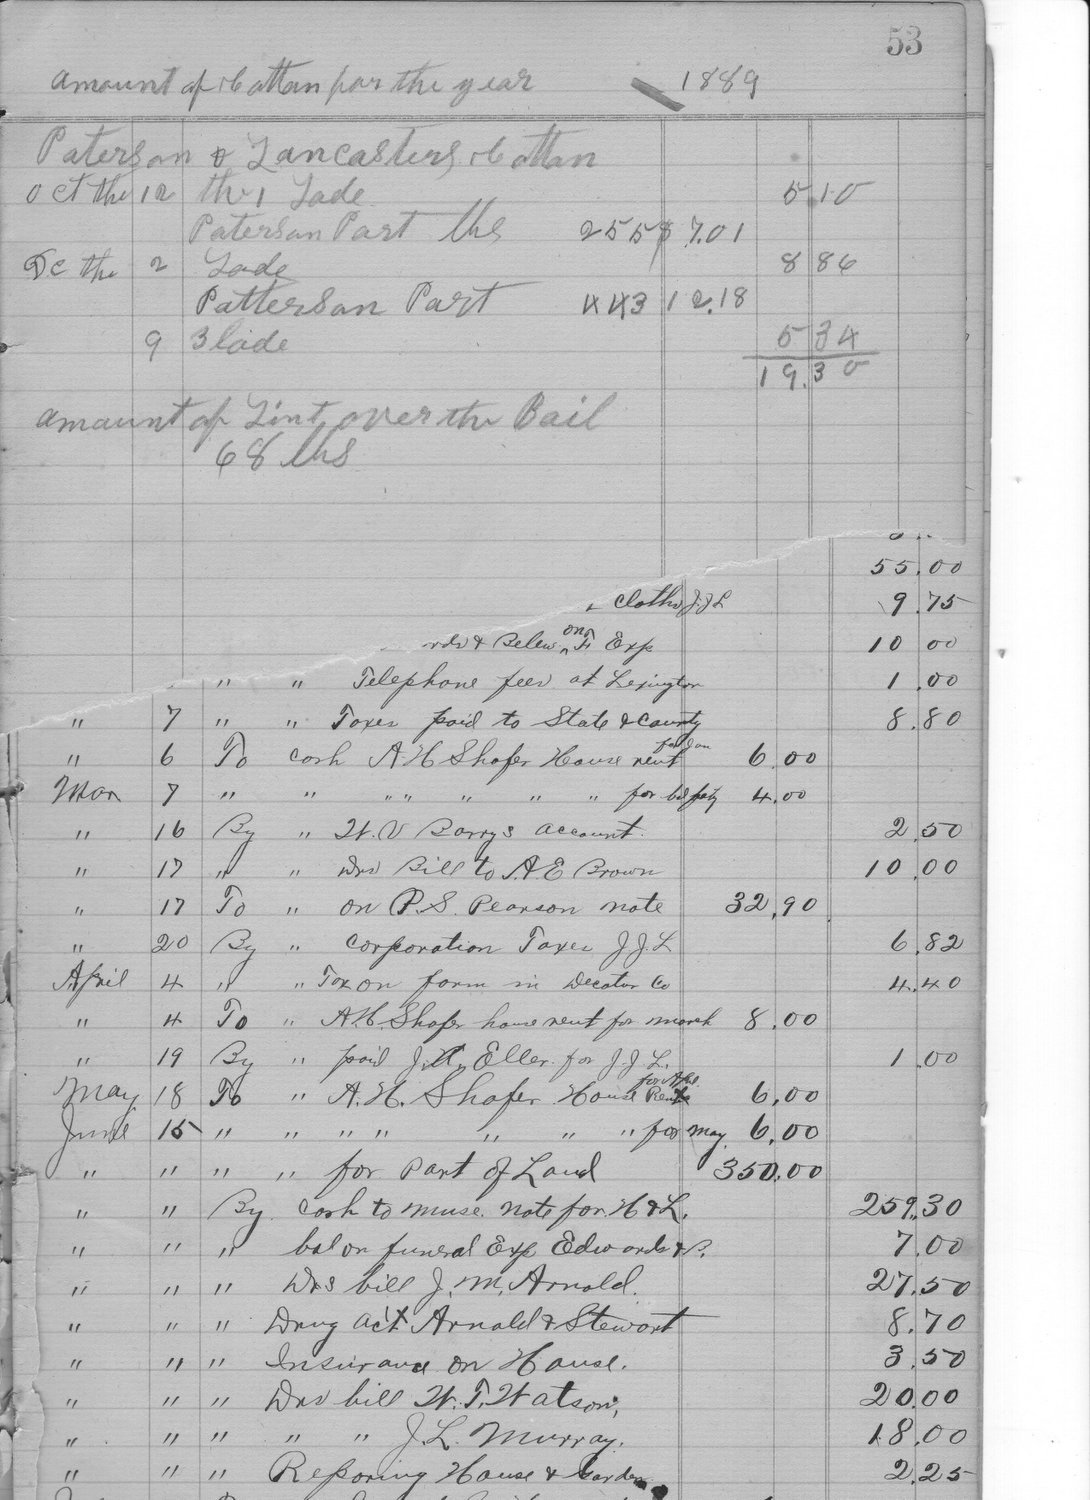 53
amount of Cottan for the year 1889
Paterson & Lancasters, Cottan
Oct the 12 the 1 Lode 510
Paterson Part lbs 255 $ 7.01
Dc the 2 Lode 886
Patterson Part 443 12.18
9 3 lode 534
19.30
amaunt of Lint over the Bail
68 lbs
55.00
cloths J.J.L 9.75
& Belew on F Exp 10 00
" " Telephone fees at Lexington 1.00
" 7 " " Taxes paid to State & County 8.80
" 6 To cash A.H Shofer House rent for Jan 6.00
Mar 7 " " " " " " " for 4.00
" 16 By " W.V Barrys account. 2.50
" 17 " " Drs Bill to A.E Brown 10.00
" 17 To " on P.S. Pearson note 32.90
" 20 By " Corporation Taxes J.J.L 6.82
April 4 " " Tax on farm in Decatur Co 4.40
" 4 To " A.H. Shofer house rent for march 8.00
" 19 By " paid J.A. Eller for J.J.L. 1.00
May 18 To " A.H. Shofer House Rent for Apl. 6.00
June 15 " " " " " " " for May. 6.00
" " " " for Part of Land 350.00
" " By cash to Muse note for H & L. 259.30
" " " bal on funeral Exp Edwards & B. 7.00
" " " Drs bill J. M. Arnold. 27.50
" " " Drug act Arnold & Stewart 8.70
" " " Insurance on House. 3.50
" " " Drs bill W. T. Watson, 20.00
" " " " " J.L. Murray. 18.00
" " " Reparing House & Garden 2.25